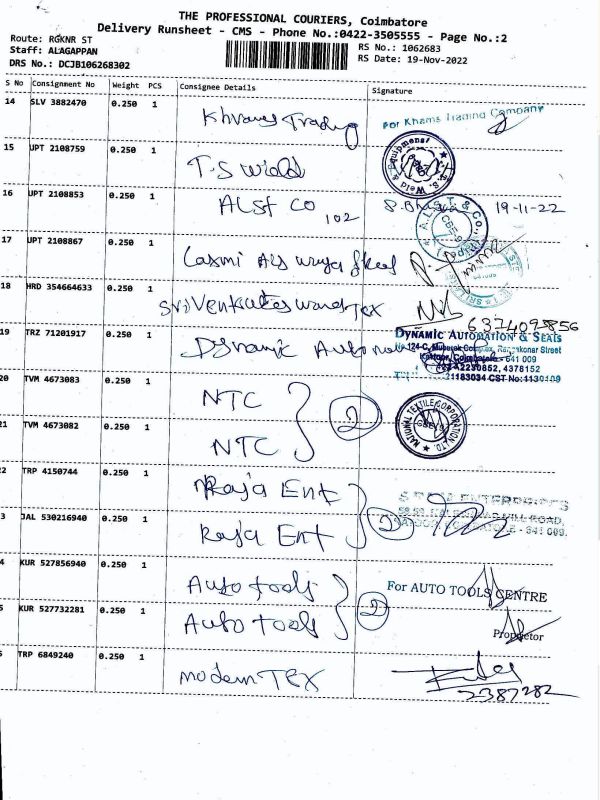 THE PROFESSIONAL COURIERS, Coimbatore
Delivery Runsheet - CMS - Phone No.:0422-3505555 - Page No.:2
Route: RGKNR ST
Staff: ALAGAPPAN
DRS No.: DCJB106268302
RS No.: 1062683
RS Date: 19-Nov-2022
S No Consignment No Weight PCS Consignee Details Signature
14 SLV 3882470 0.250 1 Trading For Khams Trading Company
15 UPT 2108759 0.250 1 T.S Weld
16 UPT 2108853 0.250 1 ALSt CO 102 19-11-22
17 UPT 2108867 0.250 1 Laxmi
18 HRD 354664633 0.250 1 Sri Venkateswara Tex
6374098856
19 TRZ 71201917 0.250 1 Dynamic Automa DYNAMIC AUTOMATION & SEALS
641 009
20 TVM 4673083 0.250 1 NTC 2 NATIONAL TEXTILE CORPORATION LTD.
21 TVM 4673082 0.250 1 NTC
22 TRP 4150744 0.250 1 Raja Ent 2 ENTERPRISES
3 JAL 530216940 0.250 1 Raja Ent MILL ROAD, 641 009.
4 KUR 527856940 0.250 1 Auto tools 2 For AUTO TOOLS CENTRE
5 KUR 527732281 0.250 1 Auto tools Proprietor
TRP 6849240 0.250 1 modern TEX
2387282